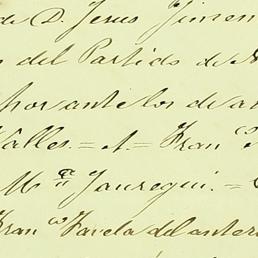 de D. Jesus Jimen
del Partido de
por ante los de a
Valles.=A=Fran co
M a Jauregui.=
Fran co Favela del anteri